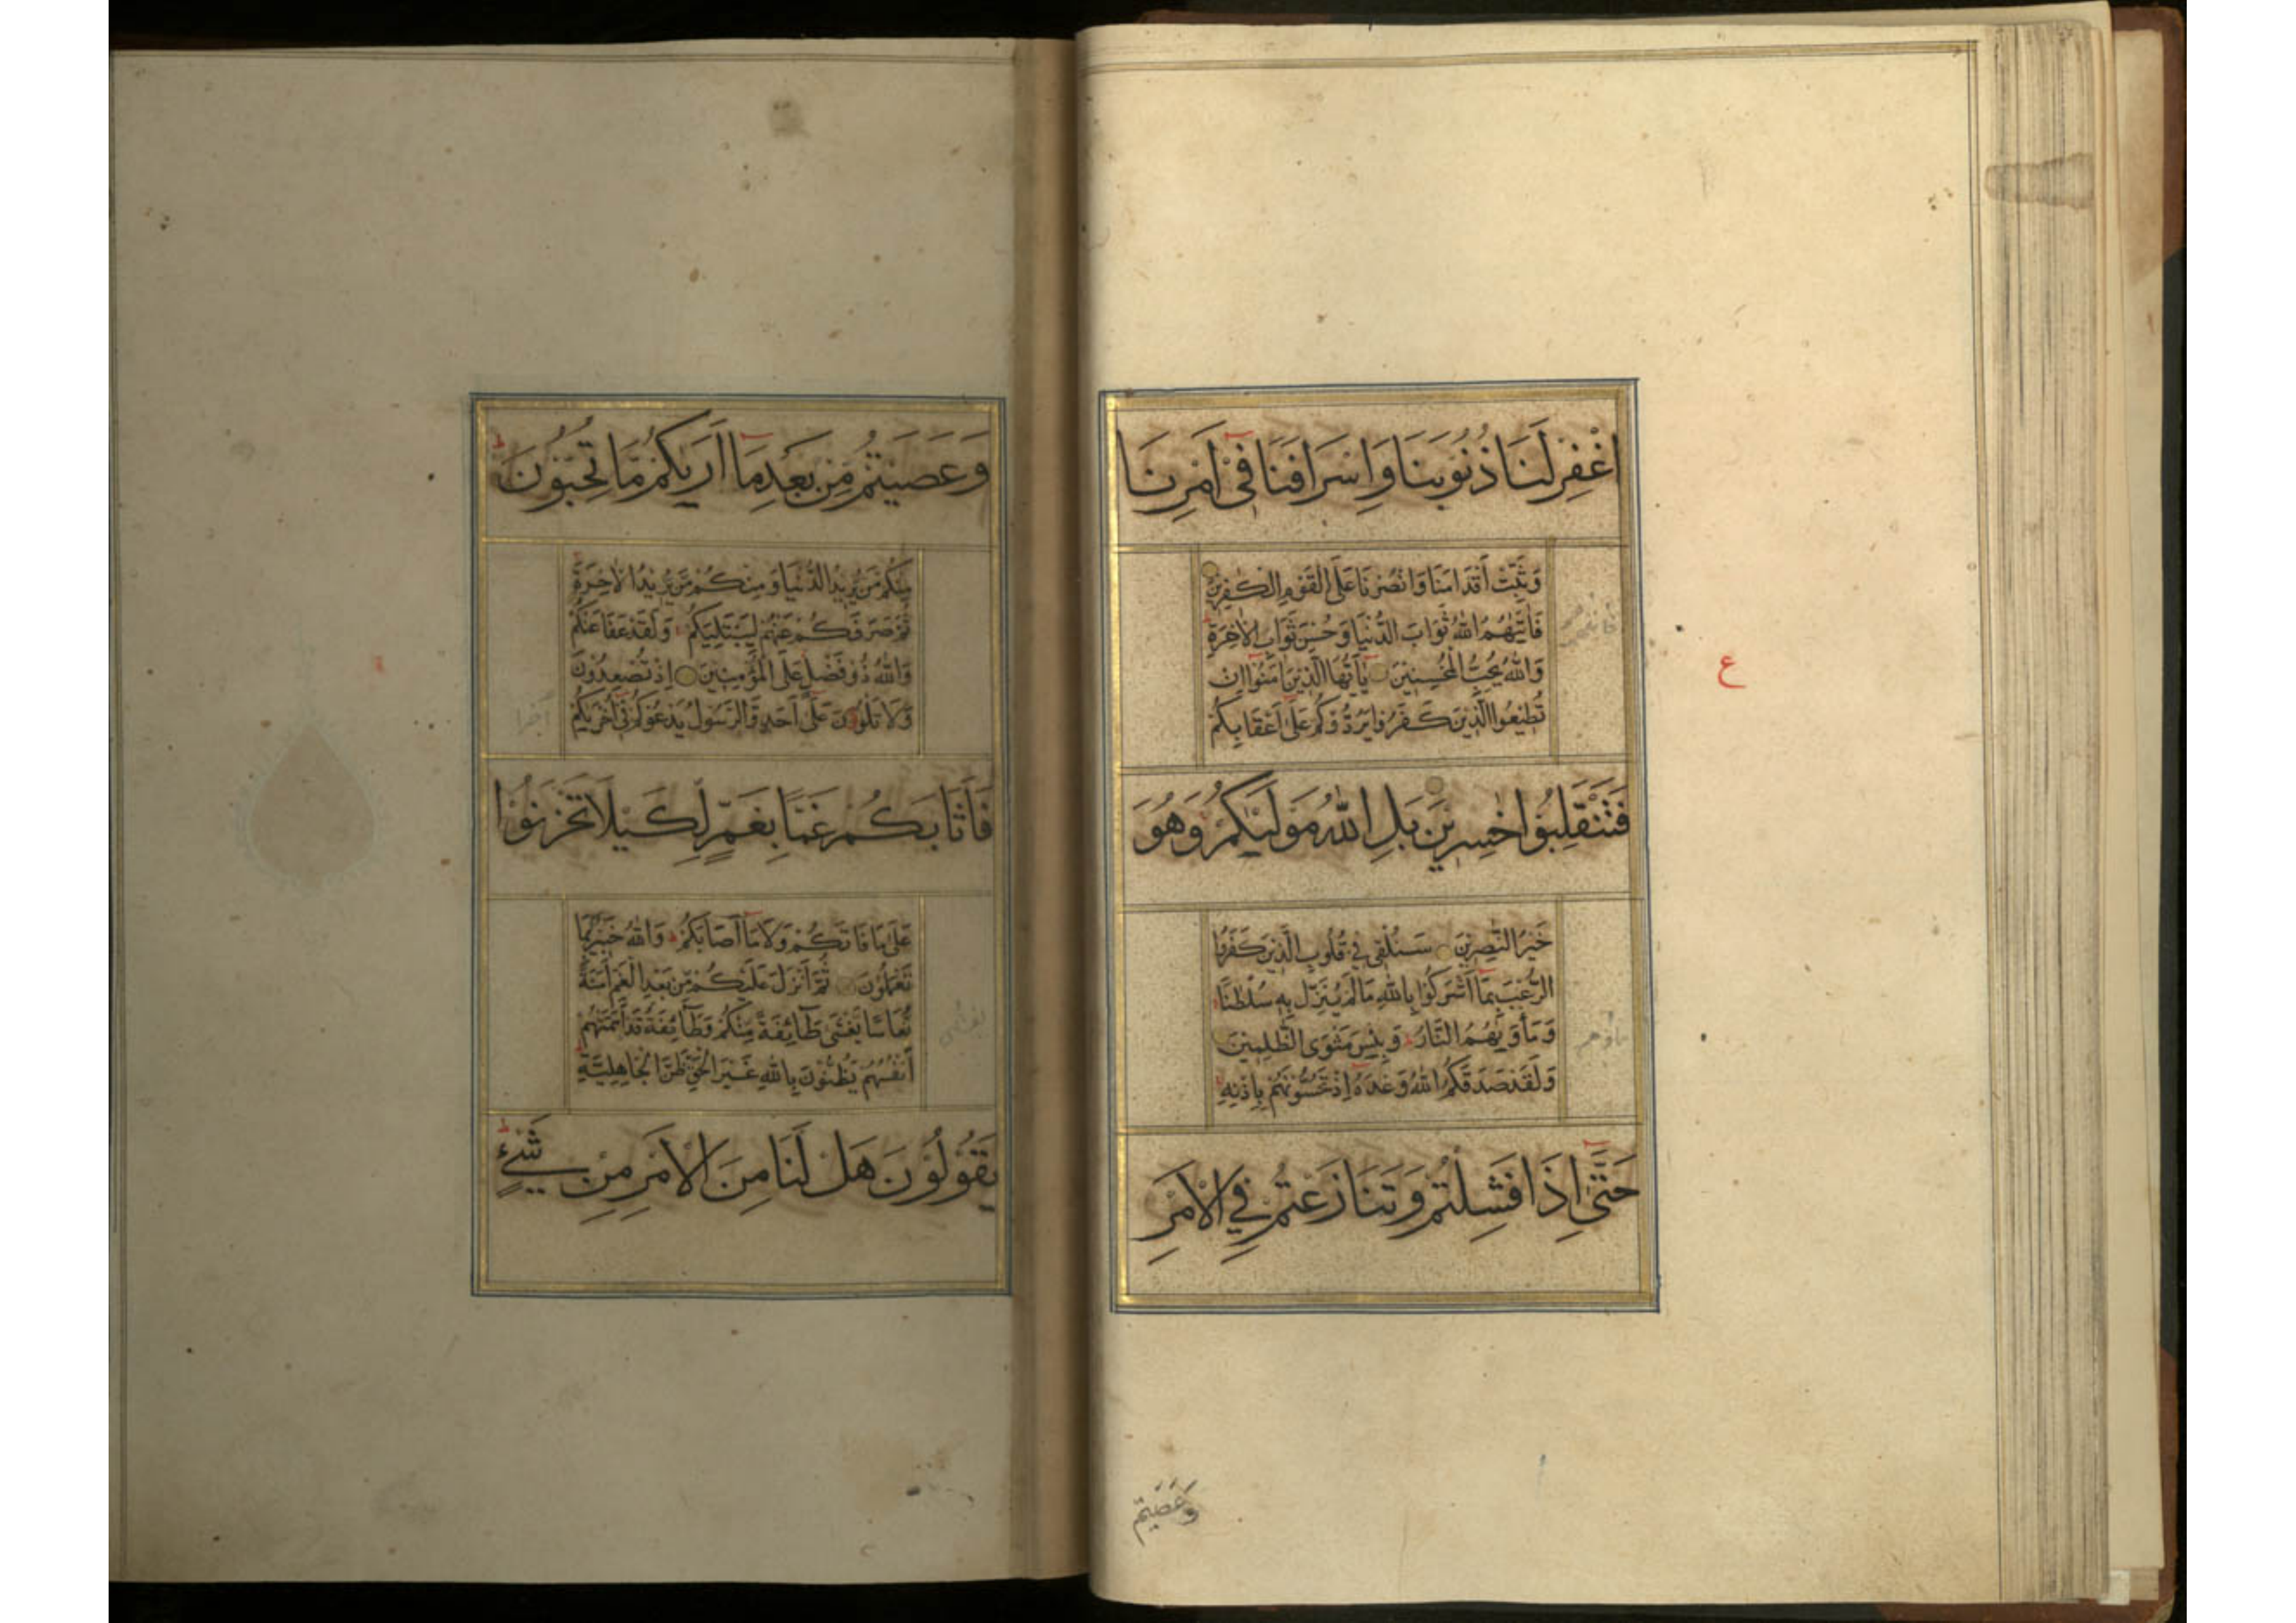 اغْفِرْ لَنَا ذُنُوْبَنَا وَاِسْرَافَنَا فِىْ اَمْرِنَا
وَثَبِّتْ أَقْدَامَنَا وَانْصُرْنَا عَلَى الْقَوْمِ الْكٰفِرِيْنَ
فَاٰتٰىهُمُ اللّٰهُ ثَوَابَ الدُّنْيَا وَحُسْنَ ثَوَابِ الْاٰخِرَةِ ط
وَاللّٰهُ يُحِبُّ الْمُحْسِنِيْنَ يٰٓاَيُّهَا الَّذِيْنَ اٰمَنُوْٓا اِنْ
تُطِيْعُوا الَّذِيْنَ كَفَرُوْا يَرُدُّوْكُمْ عَلٰٓى اَعْقَابِكُمْ
فَتَنْقَلِبُوْا خٰسِرِيْنَ بَلِ اللّٰهُ مَوْلٰىكُمْ وَهُوَ
خَيْرُ النّٰصِرِيْنَ سَنُلْقِىْ فِىْ قُلُوْبِ الَّذِيْنَ كَفَرُوا
الرُّعْبَ بِمَآ اَشْرَكُوْا بِاللّٰهِ مَا لَمْ يُنَزِّلْ بِهٖ سُلْطٰنًا
وَمَأْوٰىهُمُ النَّارُ ط وَبِئْسَ مَثْوَى الظّٰلِمِيْنَ
وَلَقَدْ صَدَقَكُمُ اللّٰهُ وَعْدَهٗٓ اِذْ تَحُسُّوْنَهُمْ بِاِذْنِهٖ
حَتّٰٓى اِذَا فَشِلْتُمْ وَتَنَازَعْتُمْ فِى الْاَمْرِ
ع
وَعَصَيْتُمْ
وَعَصَيْتُمْ مِّنْ بَعْدِ مَآ اَرٰىكُمْ مَّا تُحِبُّوْنَ ط
مِنْكُمْ مَّنْ يُّرِيْدُ الدُّنْيَا وَمِنْكُمْ مَّنْ يُّرِيْدُ الْاٰخِرَةَ
ثُمَّ صَرَفَكُمْ عَنْهُمْ لِيَبْتَلِيَكُمْ وَلَقَدْ عَفَا عَنْكُمْ
وَاللّٰهُ ذُوْ فَضْلٍ عَلَى الْمُؤْمِنِيْنَ اِذْ تُصْعِدُوْنَ
وَلَا تَلْوُوْنَ عَلٰٓى اَحَدٍ وَّالرَّسُوْلُ يَدْعُوْكُمْ فِىْٓ اُخْرٰىكُمْ
فَاَثَابَكُمْ غَمًّا بِغَمٍّ لِّكَيْلَا تَحْزَنُوْا
عَلٰى مَا فَاتَكُمْ وَلَا مَآ اَصَابَكُمْ ط وَاللّٰهُ خَبِيْرٌ بِمَا
تَعْمَلُوْنَ ثُمَّ اَنْزَلَ عَلَيْكُمْ مِّنْ بَعْدِ الْغَمِّ اَمَنَةً
نُّعَاسًا يَّغْشٰى طَآئِفَةً مِّنْكُمْ وَطَآئِفَةٌ قَدْ اَهَمَّتْهُمْ
اَنْفُسُهُمْ يَظُنُّوْنَ بِاللّٰهِ غَيْرَ الْحَقِّ ظَنَّ الْجَاهِلِيَّةِ
يَقُوْلُوْنَ هَلْ لَّنَا مِنَ الْاَمْرِ مِنْ شَىْءٍ ط